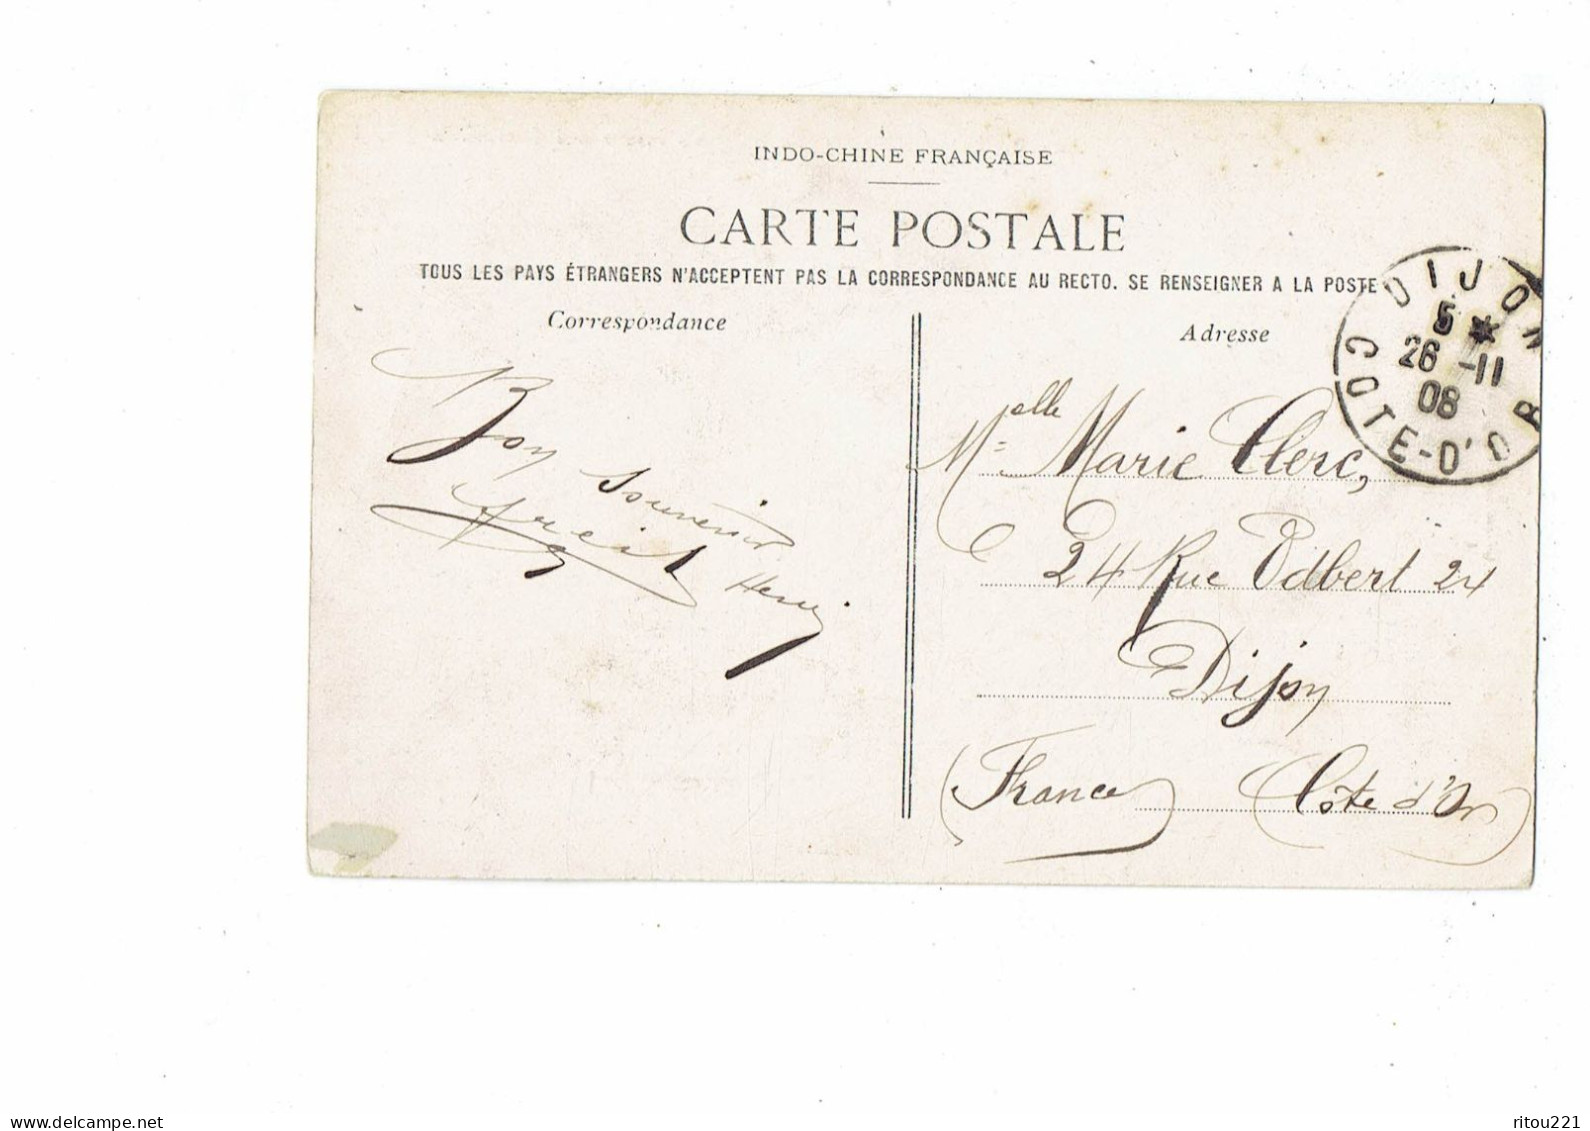 INDO-CHINE FRANÇAISE
CARTE POSTALE
TOUS LES PAYS ÉTRANGERS N'ACCEPTENT PAS LA CORRESPONDANCE AU RECTO. SE RENSEIGNER A LA POSTE
Correspondance
Adresse
DIJON
5 *
26 -11
08
COTE-D'OR
Bon
Souvenir
Henri
Melle Marie Clerc,
24 Rue Odbert 24
Dijon
(France) (Côte d'Or)
www.delcampe.net
ritou221